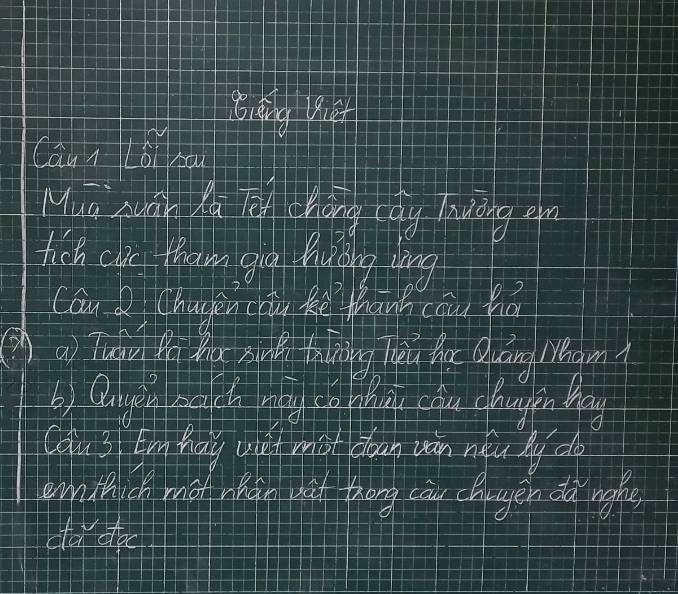 Tiếng Việt
Câu 1 Lỗi sau
Mùa xuân là Tết chồng cây Trường em
tích cực tham gia hưởng ứng
Câu 2: Chuyển câu kể thành câu hỏi
(?) a) Tuấn là học sinh trường Tiểu học Quảng Nham 1
b) Quyển sách này có nhiều câu chuyện hay
Câu 3: Em hãy viết một đoạn văn nêu lý do
em thích một nhân vật trong câu chuyện đã nghe,
đã đọc